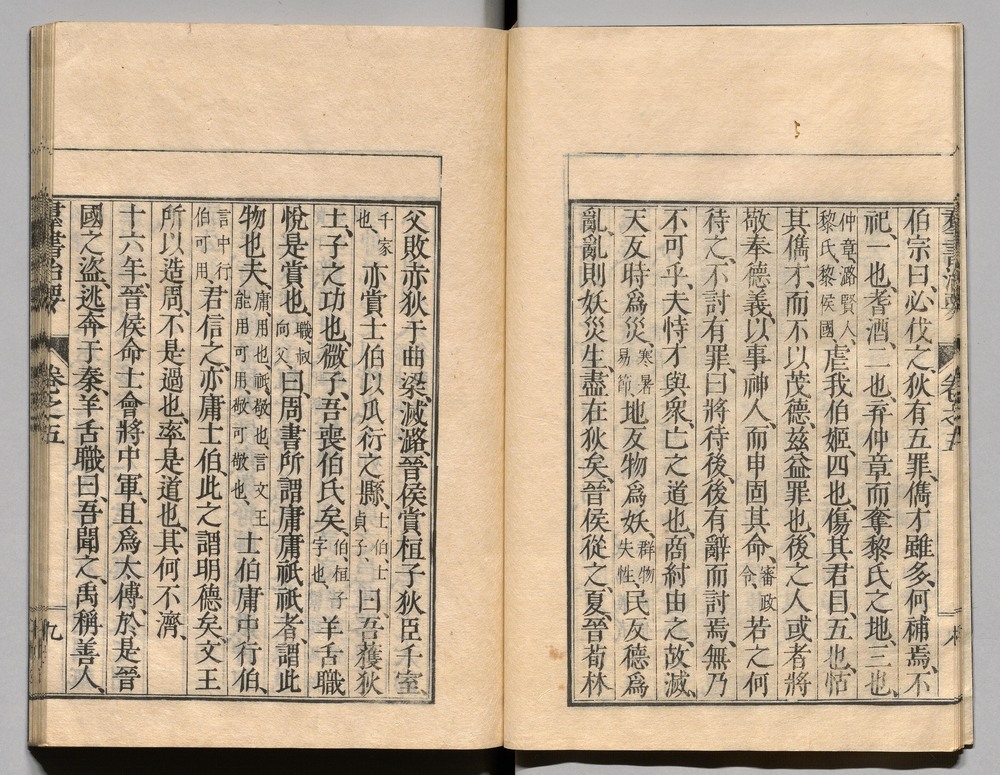 伯宗曰、必伐之、狄有五罪、儁才雖多、何補焉、不
祀、一也、耆酒、二也、弃仲章而奪黎氏之地、三也、
仲章、潞賢人、黎氏、黎侯國、虐我伯姬、四也、傷其君目、五也、怙
其儁才、而不以茂德、茲益罪也、後之人或者將
敬奉德義、以事神人、而申固其命、審政令、若之何
待之、不討有罪、曰將待後、後有辭而討焉、無乃
不可乎、夫恃才與衆、亡之道也、商紂由之、故滅、
天反時爲災、寒暑易節、地反物爲妖、群物失性、民反德爲
亂、亂則妖災生、盡在狄矣、晉侯從之、夏、晉荀林
父敗赤狄于曲梁、滅潞、晉侯賞桓子狄臣千室、
千家也、亦賞士伯以瓜衍之縣、士伯士貞子、曰、吾獲狄
土、子之功也、微子、吾喪伯氏矣、伯桓子字也、羊舌職
悅是賞也、職、叔向父、曰、周書所謂庸庸祇祇者、謂此
物也夫、庸、用也、祇、敬也、言文王能用可用、敬可敬也、士伯庸中行伯、
言中行伯可用、君信之、亦庸士伯、此之謂明德矣、文王
所以造周、不是過也、率是道也、其何不濟、
十六年、晉侯命士會將中軍、且爲太傅、於是晉
國之盜、逃奔于秦、羊舌職曰、吾聞之、禹稱善人、
羣書治要
卷之五
九